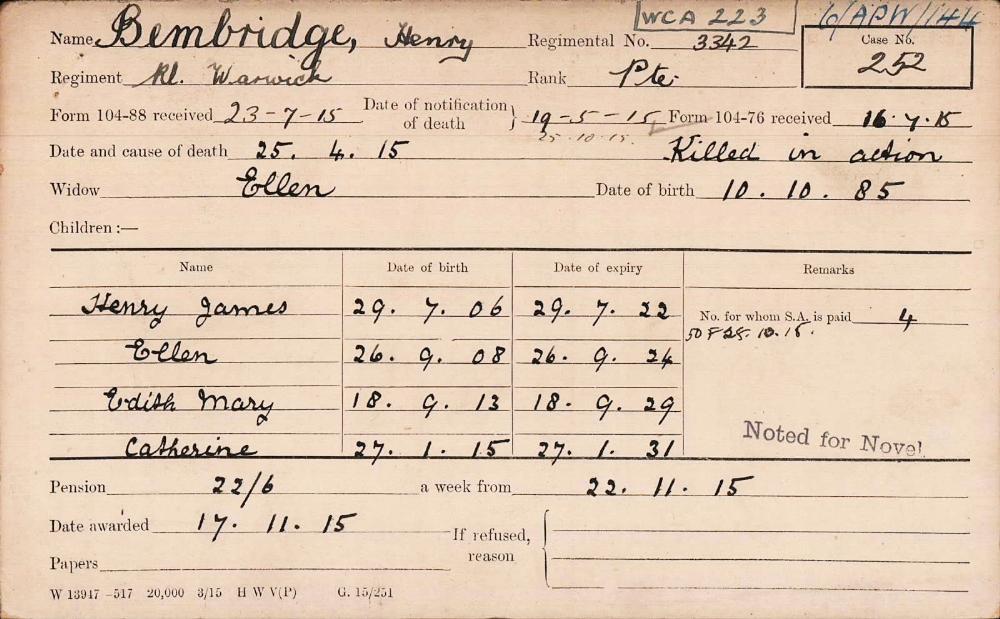 WCA 223 6/APW/144
Name Bembridge, Henry Regimental No. 3342 Case No. 252
Regiment Rl. Warwick Rank Pte.
Form 104-88 received 23-7-15 Date of notification of death } 19-5-15 Form 104-76 received 16.7.15
25.10.15.
Date and cause of death 25. 4. 15 Killed in action
Widow Ellen Date of birth 10. 10. 85
Children :—
Name Date of birth Date of expiry Remarks
Henry James 29. 7. 06 29. 7. 22 No. for whom S.A. is paid 4
50 F 25. 10. 15.
Ellen 26. 9. 08 26. 9. 24
Edith Mary 18. 9. 13 18. 9. 29
Noted for Novel
Catherine 27. 1. 15 27. 1. 31
Pension 22/6 a week from 22. 11. 15
Date awarded 17. 11. 15 If refused, reason
Papers
W 13947—517 20,000 3/15 H W V(P) G. 15/251